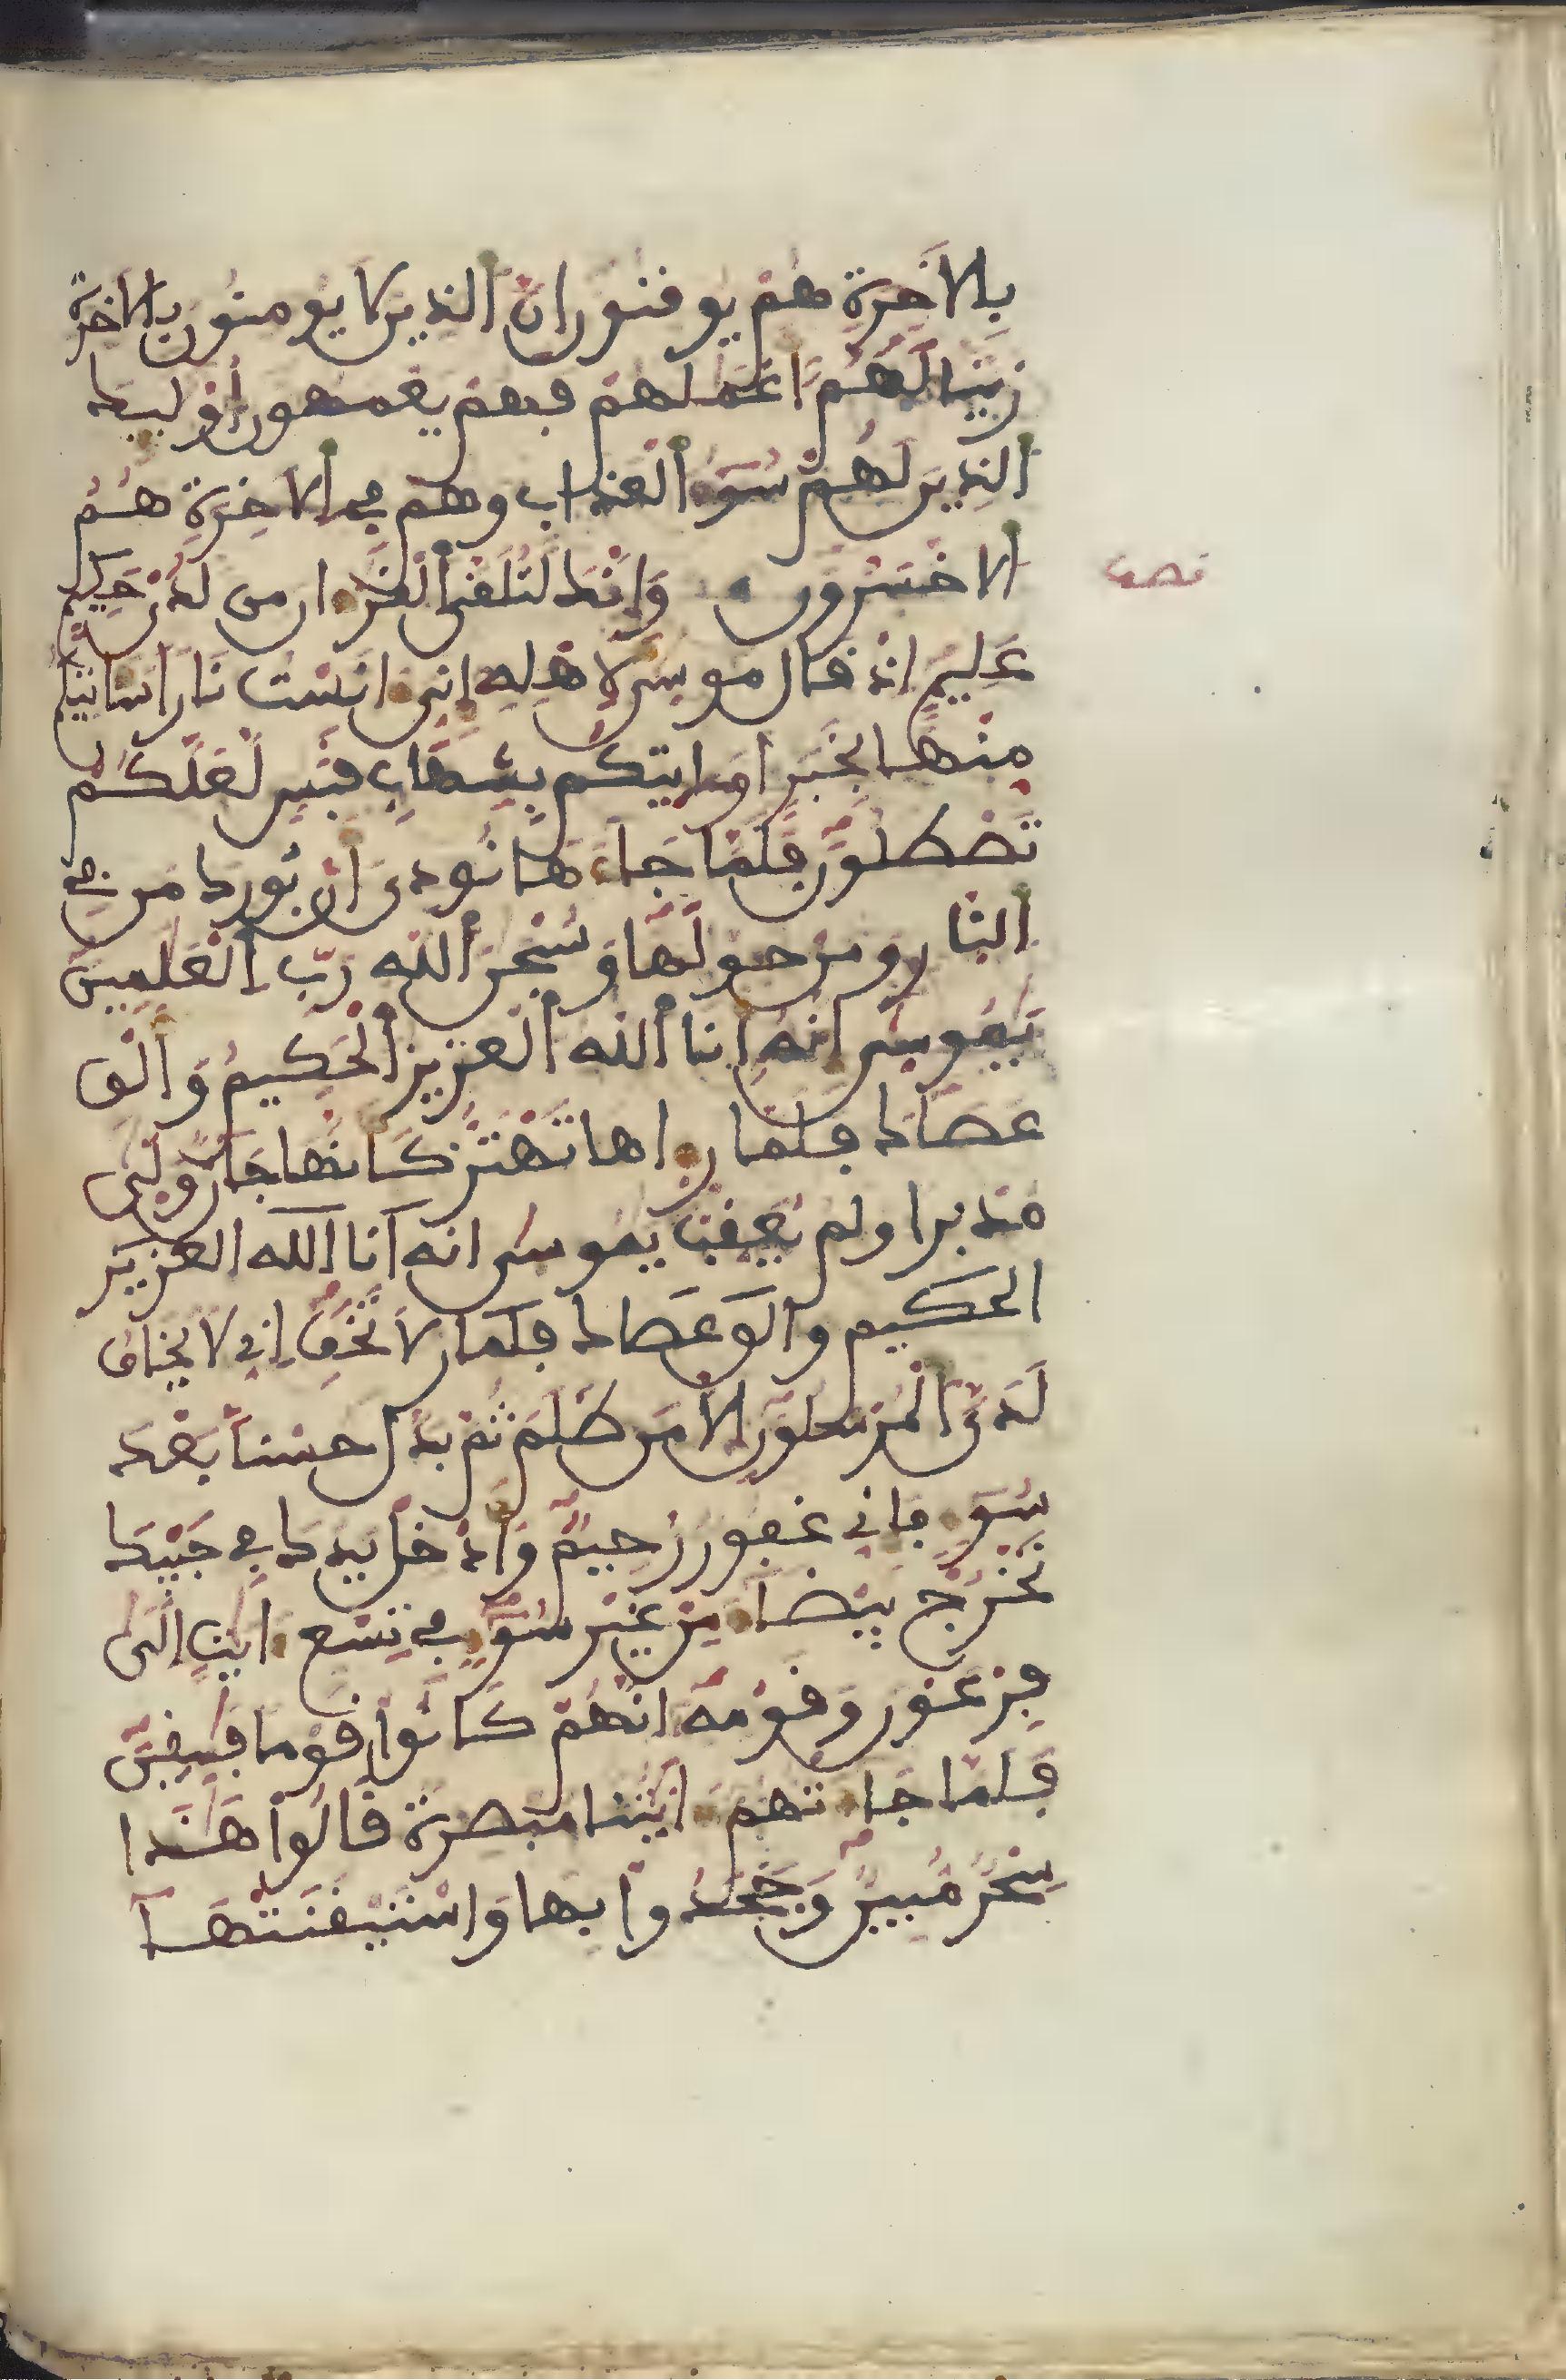 بالاخرة هم يوقنون ان الذين لا يومنون بالاخرة
زينا لهم اعملهم فهم يعمهون اوليك
الذين لهم سوء العذاب وهم في الاخرة هم
الاخسرون وانك لتلقى القرءان من لدن حكيم
نصف
عليم اذ قال موسى لاهله اني ءانست نارا ساتيكم
منها بخبر او اتيكم بشهاب قبس لعلكم
تصطلون فلما جاءها نودي ان بورك من في
النار ومن حولها وسبحن الله رب العلمين
يموسى انه انا الله العزيز الحكيم والق
عصاك فلما رءاها تهتز كانها جان ولى
مدبرا ولم يعقب يموسى انه انا الله العزيز
الحكيم والق عصاك فلما ر لا تخف اني لا يخاف
لدي المرسلون الا من ظلم ثم بدل حسنا بعد
سوء فاني غفور رحيم وادخل يدك في جيبك
تخرج بيضاء من غير سوء في تسع ءايت الى
فرعون وقومه انهم كانوا قوما فسقين
فلما جاءتهم ءايتنا مبصرة قالوا هذا
سحر مبين وجحدوا بها واستيقنتها